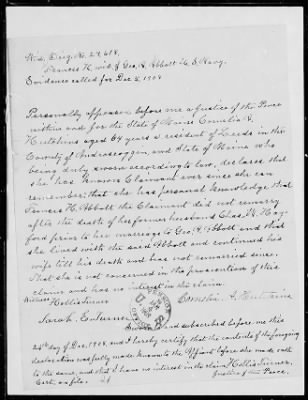 Wid. Orig. No. 29,618,
Frances H. wid. of Geo. A. Abbott U.S. Navy.
Evidence called for Dec 5, 1904
Personally appeared before me a Justice of the Peace
within and for the State of Maine Cornelia A.
Hutchins aged 64 years a resident of Leeds, in the
County of Androscoggin, and State of Maine who
being duly sworn according to law, declares that
she has known Claimant ever since she can
remember; that she has personal knowledge that
Frances H. Abbott the Claimant did not remarry
after the death of her former husband Chas. H.
ford prior to her marriage to Geo. A. Abbott and that
she lived with the said Abbott and continued his
wife till his death and has not remarried since.
That she is not concerned in the prosecution of this
claim and has no interest in the claim.
Witnesses
Hollis Turner Cornelia A. Hutchins
Sarah E. Turner
Sworn to and subscribed before me this
24th day of Dec, 1904, and I hereby certify that the contents of the foregoing
declaration was fully made known to the Affiant before she made oath
to the same, and that I have no interest in the claim. Hollis Turner,
Cert. on file. Justice of the Peace.